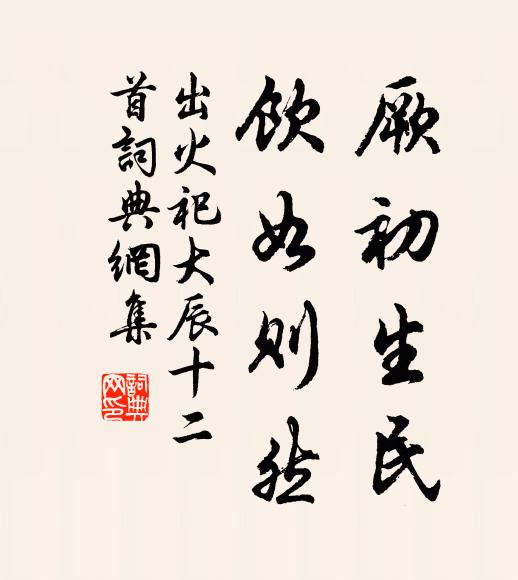 厥初生民
飲如則然
出火祀大辰十二
首詞典網集
詞典
网印